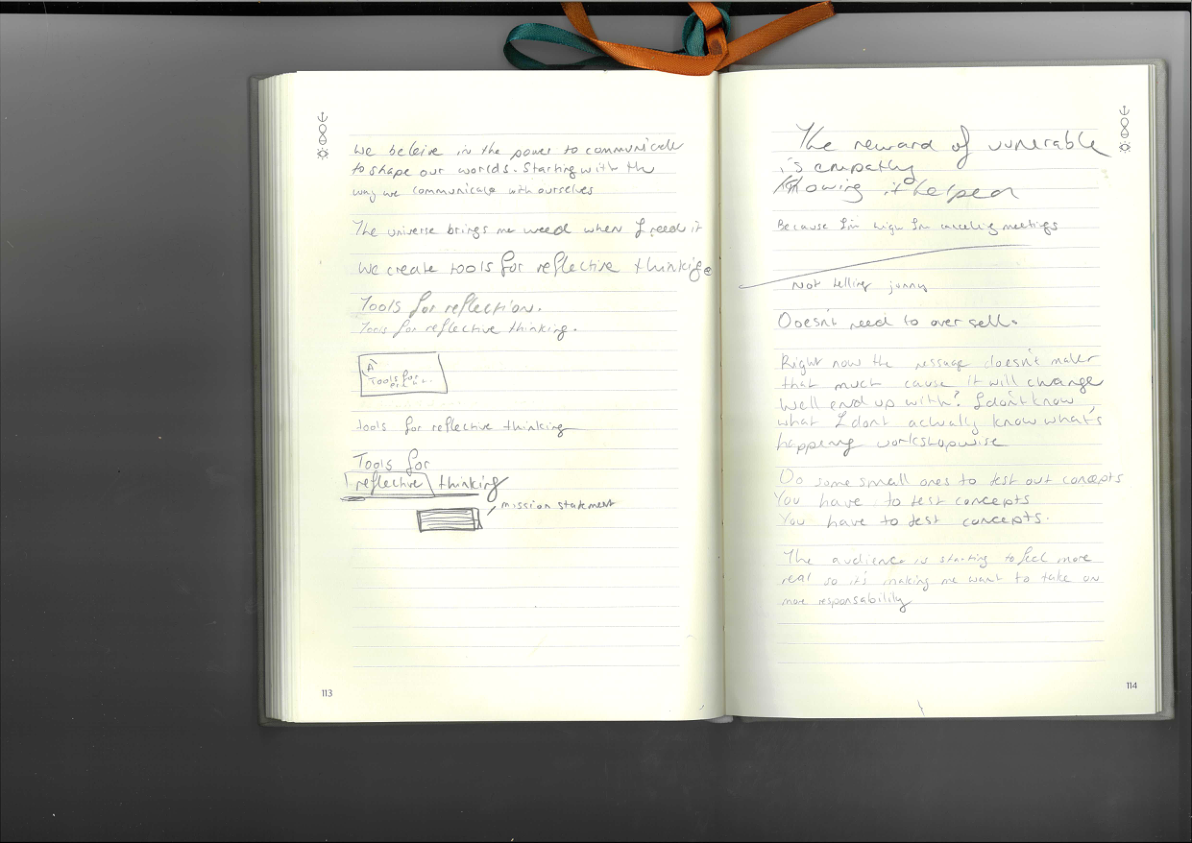 We beleive in the power to communicate
to shape our worlds. Starting with the
way we communicate with ourselves
The universe brings me weed when I need it
We create tools for reflective thinking
Tools for reflection.
Tools for reflective thinking.
A
Tools for
tools for reflective thinking
Tools for
reflective thinking
mission statement
113
The reward of vunerable
is empathy
Knowing it helped
Because I'm high I'm canceling meetings
Not telling
Doesn't need to over sell.
Right now the message doesn't mater
that much cause it will change
We'll end up with? I don't know
what I dont actually know what's
happening workshopwise
Do some small ones to test out concepts
You have to test concepts
You have to test concepts.
The audience is starting to feel more
real so it's making me want to take on
more responsability
114